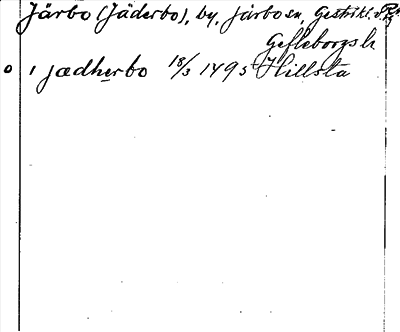 Järbo (Jäderbo), by, Järbo sn, Gestrikl.
Gefleborgs l.
o i jædherbo 18/3 1495 Hillsta